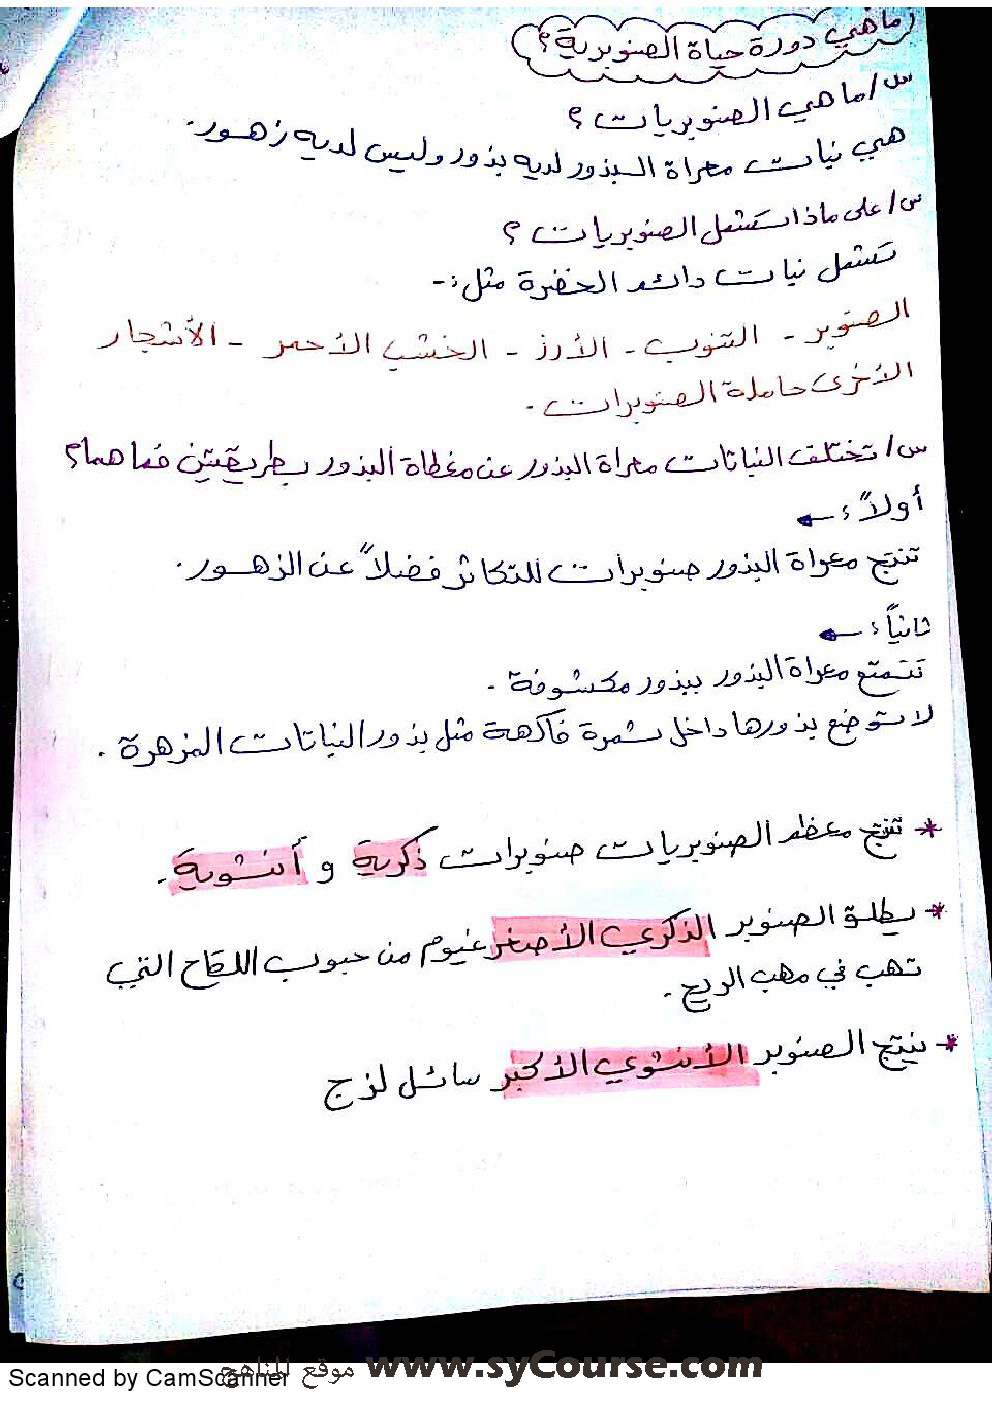 ما هي دورة حياة الصنوبرية؟
س/ ما هي الصنوبريات؟
هي نباتات معراة البذور لديه بذور وليس لديه زهور.
س/ على ماذا تشتمل الصنوبريات؟
تشمل نباتات دائمة الخضرة مثل:-
الصنوبر - التنوب - الأرز - الخشب الأحمر - الأشجار
الأخرى حاملة الصنوبرات -
س/ تختلف النباتات معراة البذور عن مغطاة البذور بطريقتين فما هما؟
أولاً: ←
تنتج معراة البذور صنوبرات للتكاثر فضلاً عن الزهور.
ثانياً: ←
تتمتع معراة البذور ببذور مكشوفة.
لا توضع بذورها داخل ثمرة فاكهة مثل بذور النباتات المزهرة.
* تنتج معظم الصنوبريات صنوبرات ذكرية و أنثوية.
* يطلق الصنوبر الذكري الأصغر غيوم من حبوب اللقاح التي
تهب في مهب الريح.
* ينتج الصنوبر الأنثوي الأكبر سائل لزج
موقع المناهج www.syCourse.com
Scanned by CamScanner